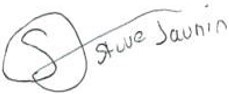 S Steve Jaunin